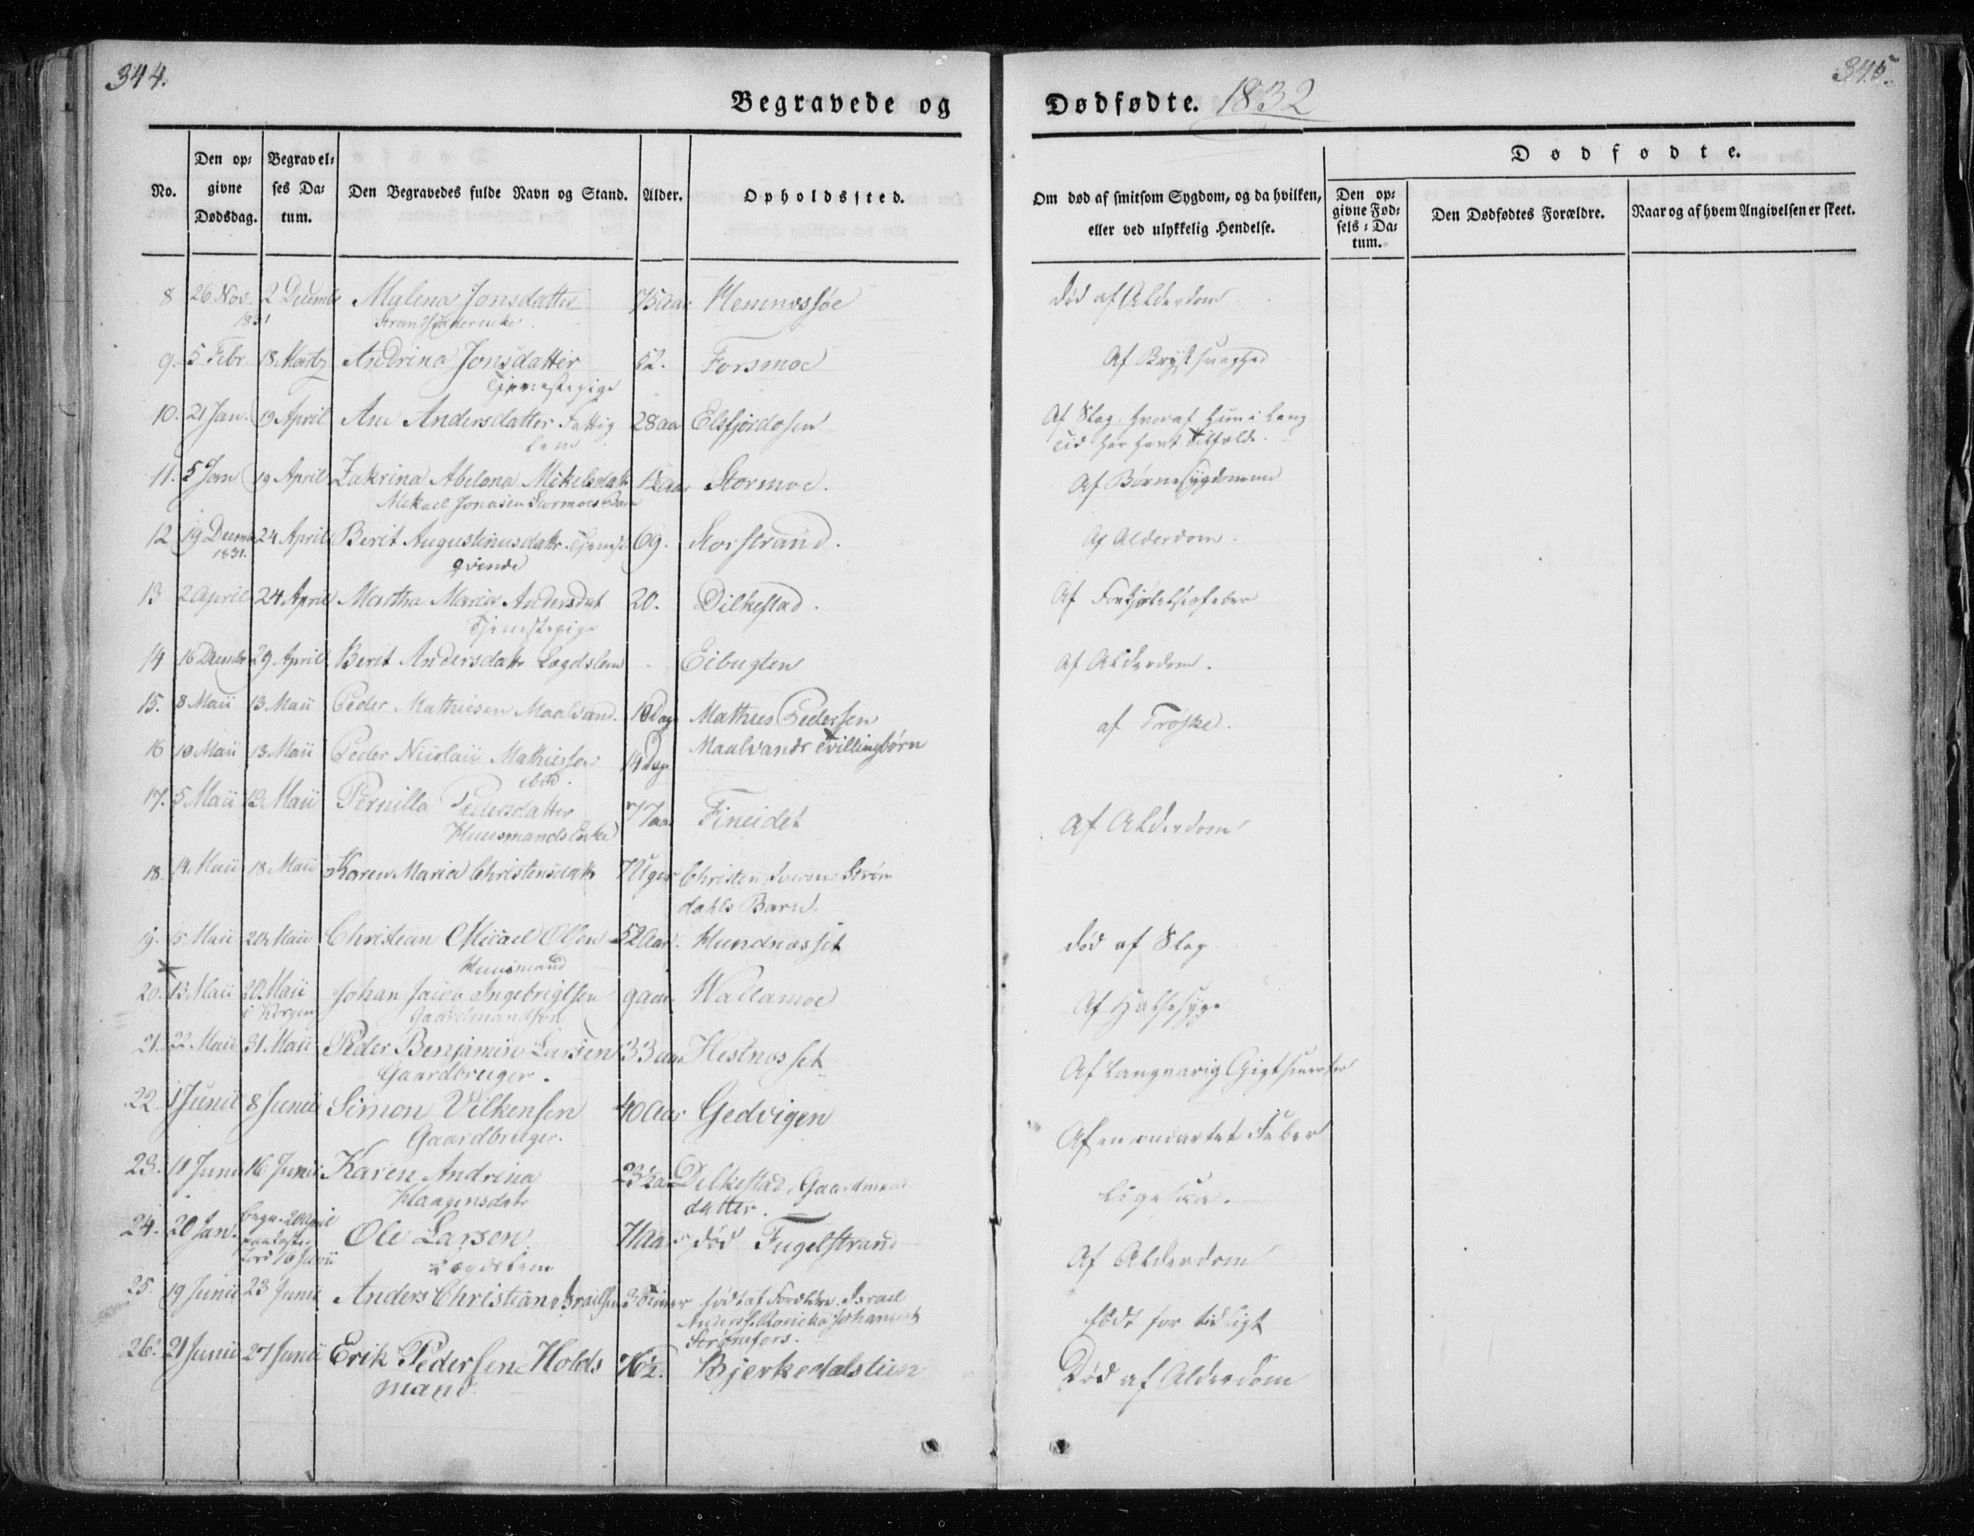 344.
345.
Begravede og Dødfødte. 1832
No.
Den op-
givne
Dødsdag.
Begravel-
ses Da-
tum.
Den Begravedes fulde Navn og Stand.
Alder.
Opholdssted.
Om død af smitsom Sygdom, og da hvilken,
eller ved ulykkelig Hendelse.
Dødfødte.
Den op-
givne Fød-
sels-Da-
tum.
Den Dødfødtes Forældre.
Naar og af hvem Angivelsen er skeet.
8 26 Nov. 2 Decembr Mylena Jonsdatter 75 aar Hemnessøe død af Alderdom
1831
9. 5 Febr 18 Martz Andrina Jonsdatter 52. Forsmoe Af Brystsvaghed
Tjenestepige
10. 21 Jan. 19 April Ane Andersdatter Fattig 28 aar Elsfjordosen Af Slag, hvoraf hun i lang
lem Tid har havt Tilfælde.
11. 5 Jan 19 April Zakrina Abelona Mikelsdatr Stormoe. Af Børnesygdomme
Mikael Jonasen Stormoes Barn
12 19 Decembr 24 April Berit Augustinusdatr Tjeneste 69. Korstrand. Af Alderdom.
1831. qvinde
13 2 April 24 April Martha Maria Andersdat 20. Dilkestad. Af Forkjølelsesfeber
Tjenestepige
14 16 Decembr 29 April Berit Andersdatr Lægdslem - Eibugten Af Alderdom.
15. 8 Maii 13 Maii Peder Mathiesen Maalvand. 10 Dage Mathies Pedersen af Trøske.
16 Maii 13 Maii Peder Nicolaii Mathiesen 14 Dage Maalvands Tvillingbørn
ibid.
17. 5 Maii 13 Maii Pernilla Pedersdatter 77 aar Fineidet Af Alderdom
Huusmands Enke
18. 14 Maii 18 Maii Karen Maria Christensdatr 7 Uger Christen Iversen Strøm
dahls Barn.
19. 15 Maii 20 Maii Christian Micael Olsen 52 Aar. Hundnesset død af Slag
Huusmand
20. 13 Maii 20 Maii Johan Jacob Ingebrigtsen 9 aar Wallamoe Af Halssyge
i Korgen Gaardmandsøn
21. 22 Maii 31 Maii Peder Benjamin Larsen 33 aar Hestnesset Af langvarig Gigtsmerter
Gaardbruger.
22. 1 Junii 8 Junii Simon Vilkensen 40 Aar Gedvigen Af en ondartet Feber
Gaardbruger.
23. 11 Junii 16 Junii Karen Andrina 23½ aar Dilkestad, Gaardmands ligesaa.
Haagensdatr datter.
24. 20 Jan. Ole Larsen død Fugelstrand Af Alderdom
Lægdslem
25. 19 Junii 23 Junii Anders Christian Israelsen 3 Timer født af Forældre Israel født for tidligt
Strømfors.
26. 21 Junii 27 Junii Erik Pedersen Holds 76½. Bjerkedalstien Død af Alderdom
mand